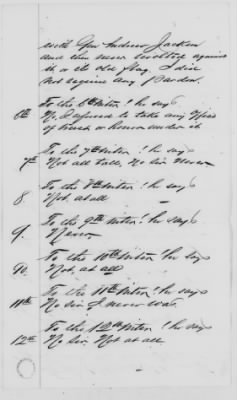 with Gen Andrew Jackson
and then never revolted against
it or its old flag. I did
not require any Pardon.
To the 6th Inter! he says
6th No. I refused to take any office
of trust or honor under it
To the 7th Inter! he says
7th Not at all, No Sir Never
To the 8th Inter! he says
8. Not at all
To the 9th Inter! he says
9. Never
To the 10th Inter! he says
10. Not at all
To the 11th Inter! he says
11th No Sir I never was.
To the 12th Inter! he says
12th No Sir Not at all